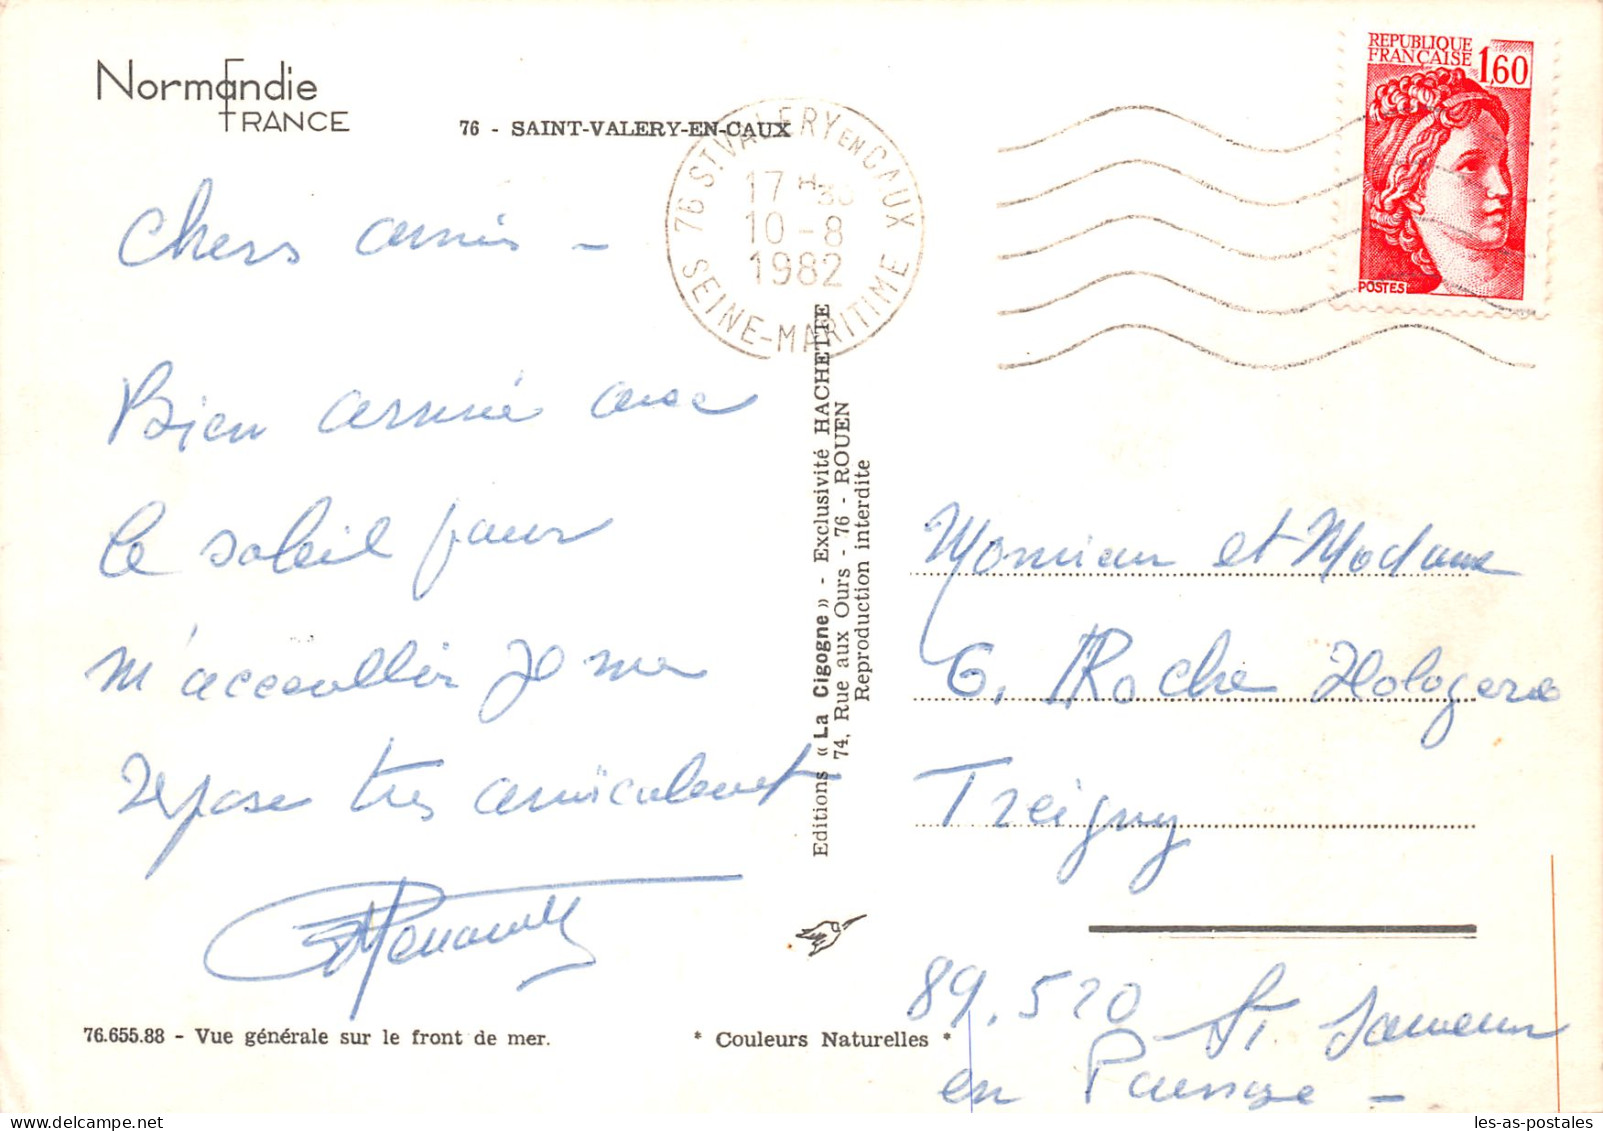 Normandie
FRANCE
76 - SAINT-VALERY-EN-CAUX
76 ST VALERY EN CAUX
17 H 30
10 - 8
1982
SEINE-MARITIME
REPUBLIQUE
FRANÇAISE 1,60
POSTES
Chers amis -
Bien arrivé avec
le soleil pour
m'accueillir Je me
repose très amicalement
Editions « La Cigogne » - Exclusivité HACHETTE
74, Rue aux Ours - 76 - ROUEN
Reproduction interdite
Monsieur et Madame
G. Roche Hologere
Treigny
89.520
St Sauveur
en Puisaye -
76.655.88 - Vue générale sur le front de mer.
* Couleurs Naturelles *
les-as-postales